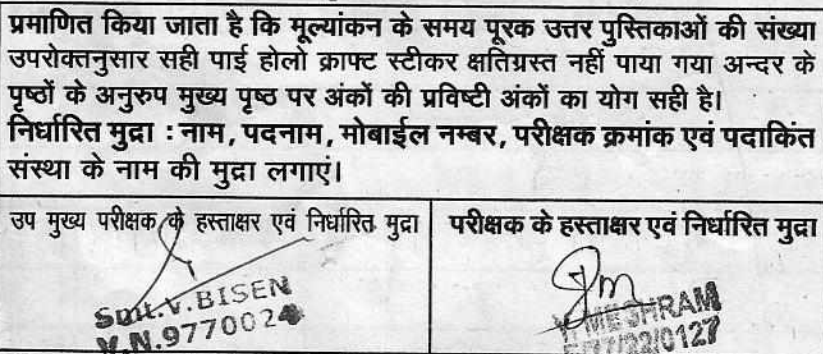 प्रमाणित किया जाता है कि मूल्यांकन के समय पूरक उत्तर पुस्तिकाओं की संख्या
उपरोक्तनुसार सही पाई होलो क्राफ्ट स्टीकर क्षतिग्रस्त नहीं पाया गया अन्दर के
पृष्ठों के अनुरुप मुख्य पृष्ठ पर अंकों की प्रविष्टी अंकों का योग सही है।
निर्धारित मुद्रा : नाम, पदनाम, मोबाईल नम्बर, परीक्षक क्रमांक एवं पदाकिंत
संस्था के नाम की मुद्रा लगाएं।
उप मुख्य परीक्षक के हस्ताक्षर एवं निर्धारित मुद्रा
Smt.V.BISEN
V.N.9770024
परीक्षक के हस्ताक्षर एवं निर्धारित मुद्रा
MESHRAM